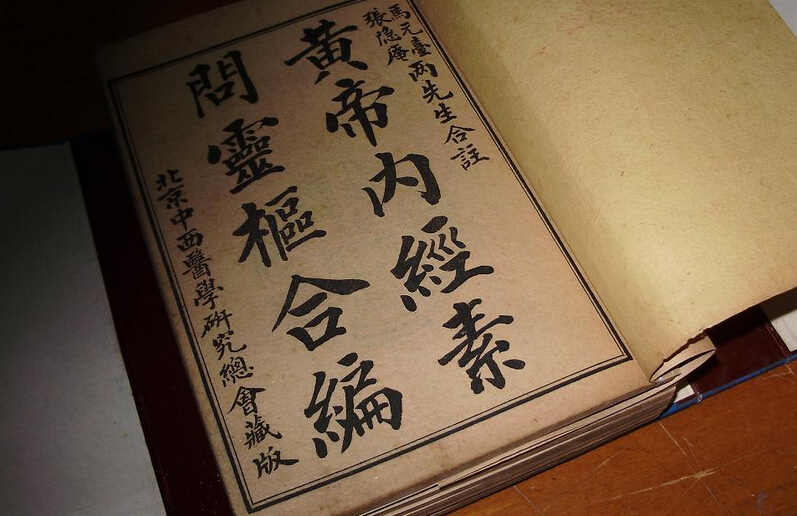 馬元臺
張隐庵
两先生合註
黃帝内經素
問靈樞合編
北京中西醫學研究總會藏版